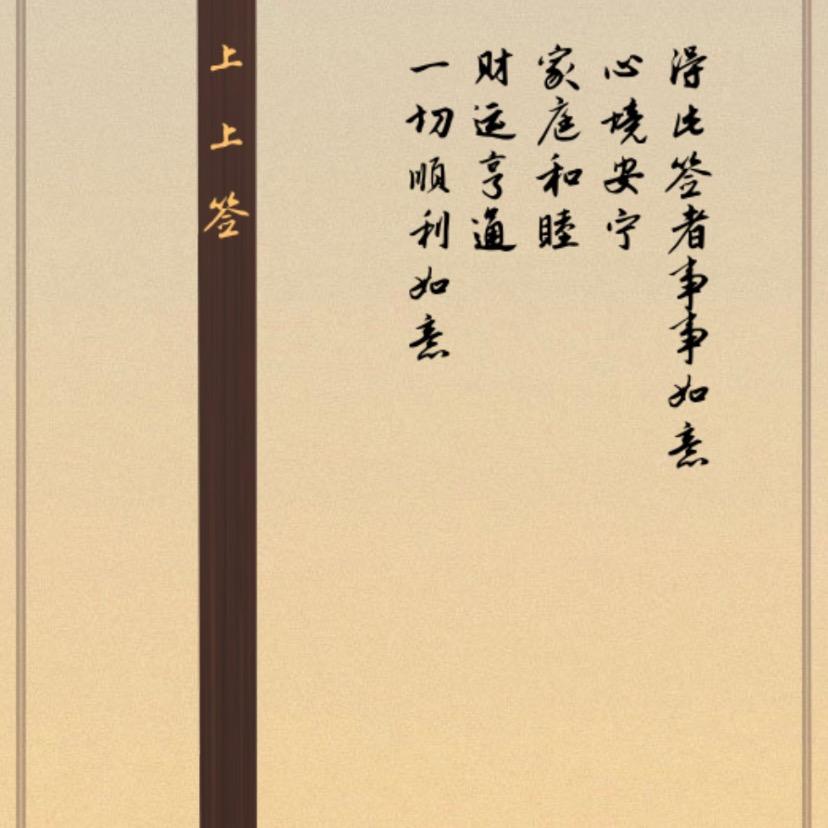 得此签者事事如意
心境安宁
家庭和睦
财运亨通
一切顺利如意
上上签